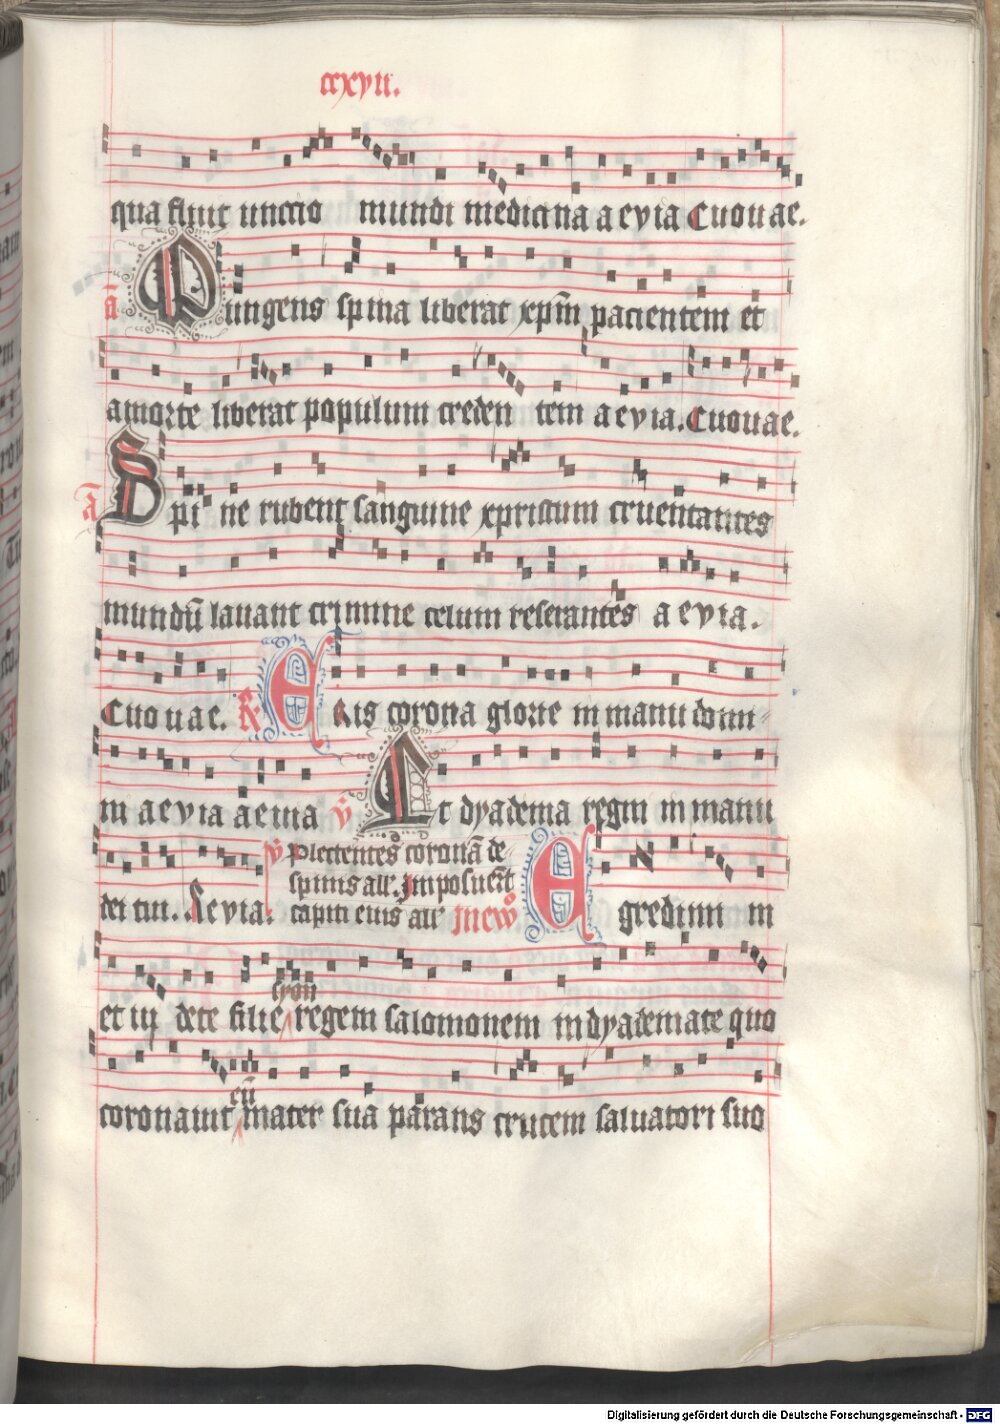 ccxvii.
qua fluit unctio mundi medicina aevia Cuouae.
a̅ Pungens spina liberat xp̄m pacientem et
amorte liberat populum creden tem aevia. Cuouae.
a̅ Spi ne rubent sanguine xpristum cruentantes
mundū lavant crimine celum reserantes aevia.
Cuouae. R Eris corona glorie in manu domi
ni aevia aeuia v̄ Et dyadema regni in manu
dei tui. Aevia. v̄ Plectentes coronā de
spinis all'. Imposuer̄t
capiti eius all' In ewº Egredimi in
et iij dete filie syon regem salomonem in dyademate quo
coronavit eū mater sua parans crucem salvatori suo
Digitalisierung gefördert durch die Deutsche Forschungsgemeinschaft - DFG